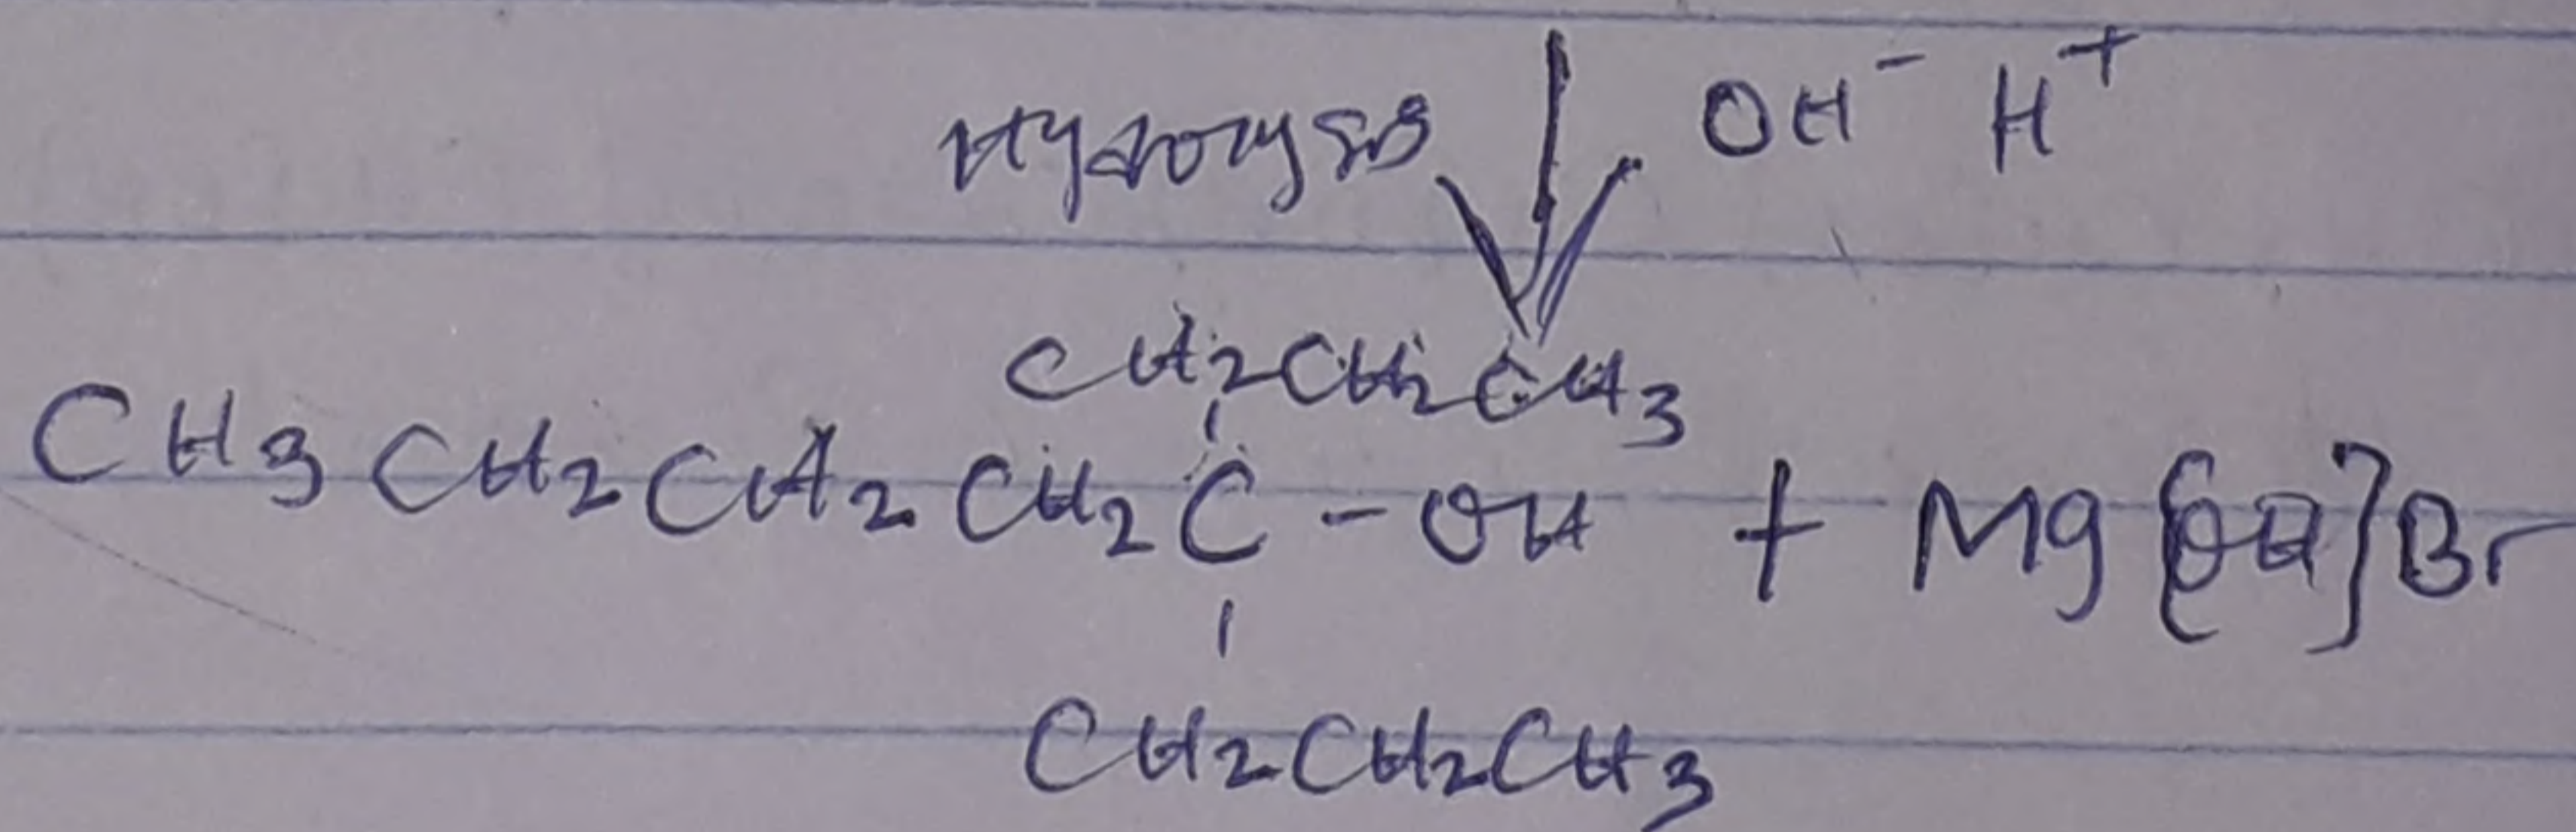 Hydrolysis OH⁻ H⁺
CH₂CH₂CH₃
CH₃CH₂CH₂CH₂C-OH + Mg[OH]Br
CH₂CH₂CH₃